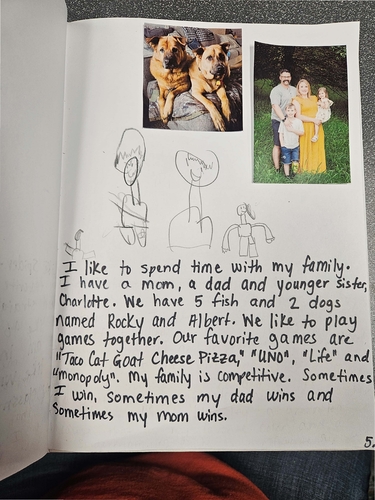 I like to spend time with my family.
I have a mom, a dad and younger sister,
Charlotte. We have 5 fish and 2 dogs
named Rocky and Albert. We like to play
games together. Our favorite games are
"Taco Cat Goat Cheese Pizza," "UNO", "Life" and
"monopoly". My family is competitive. Sometimes
I win, sometimes my dad wins and
sometimes my mom wins.
5.